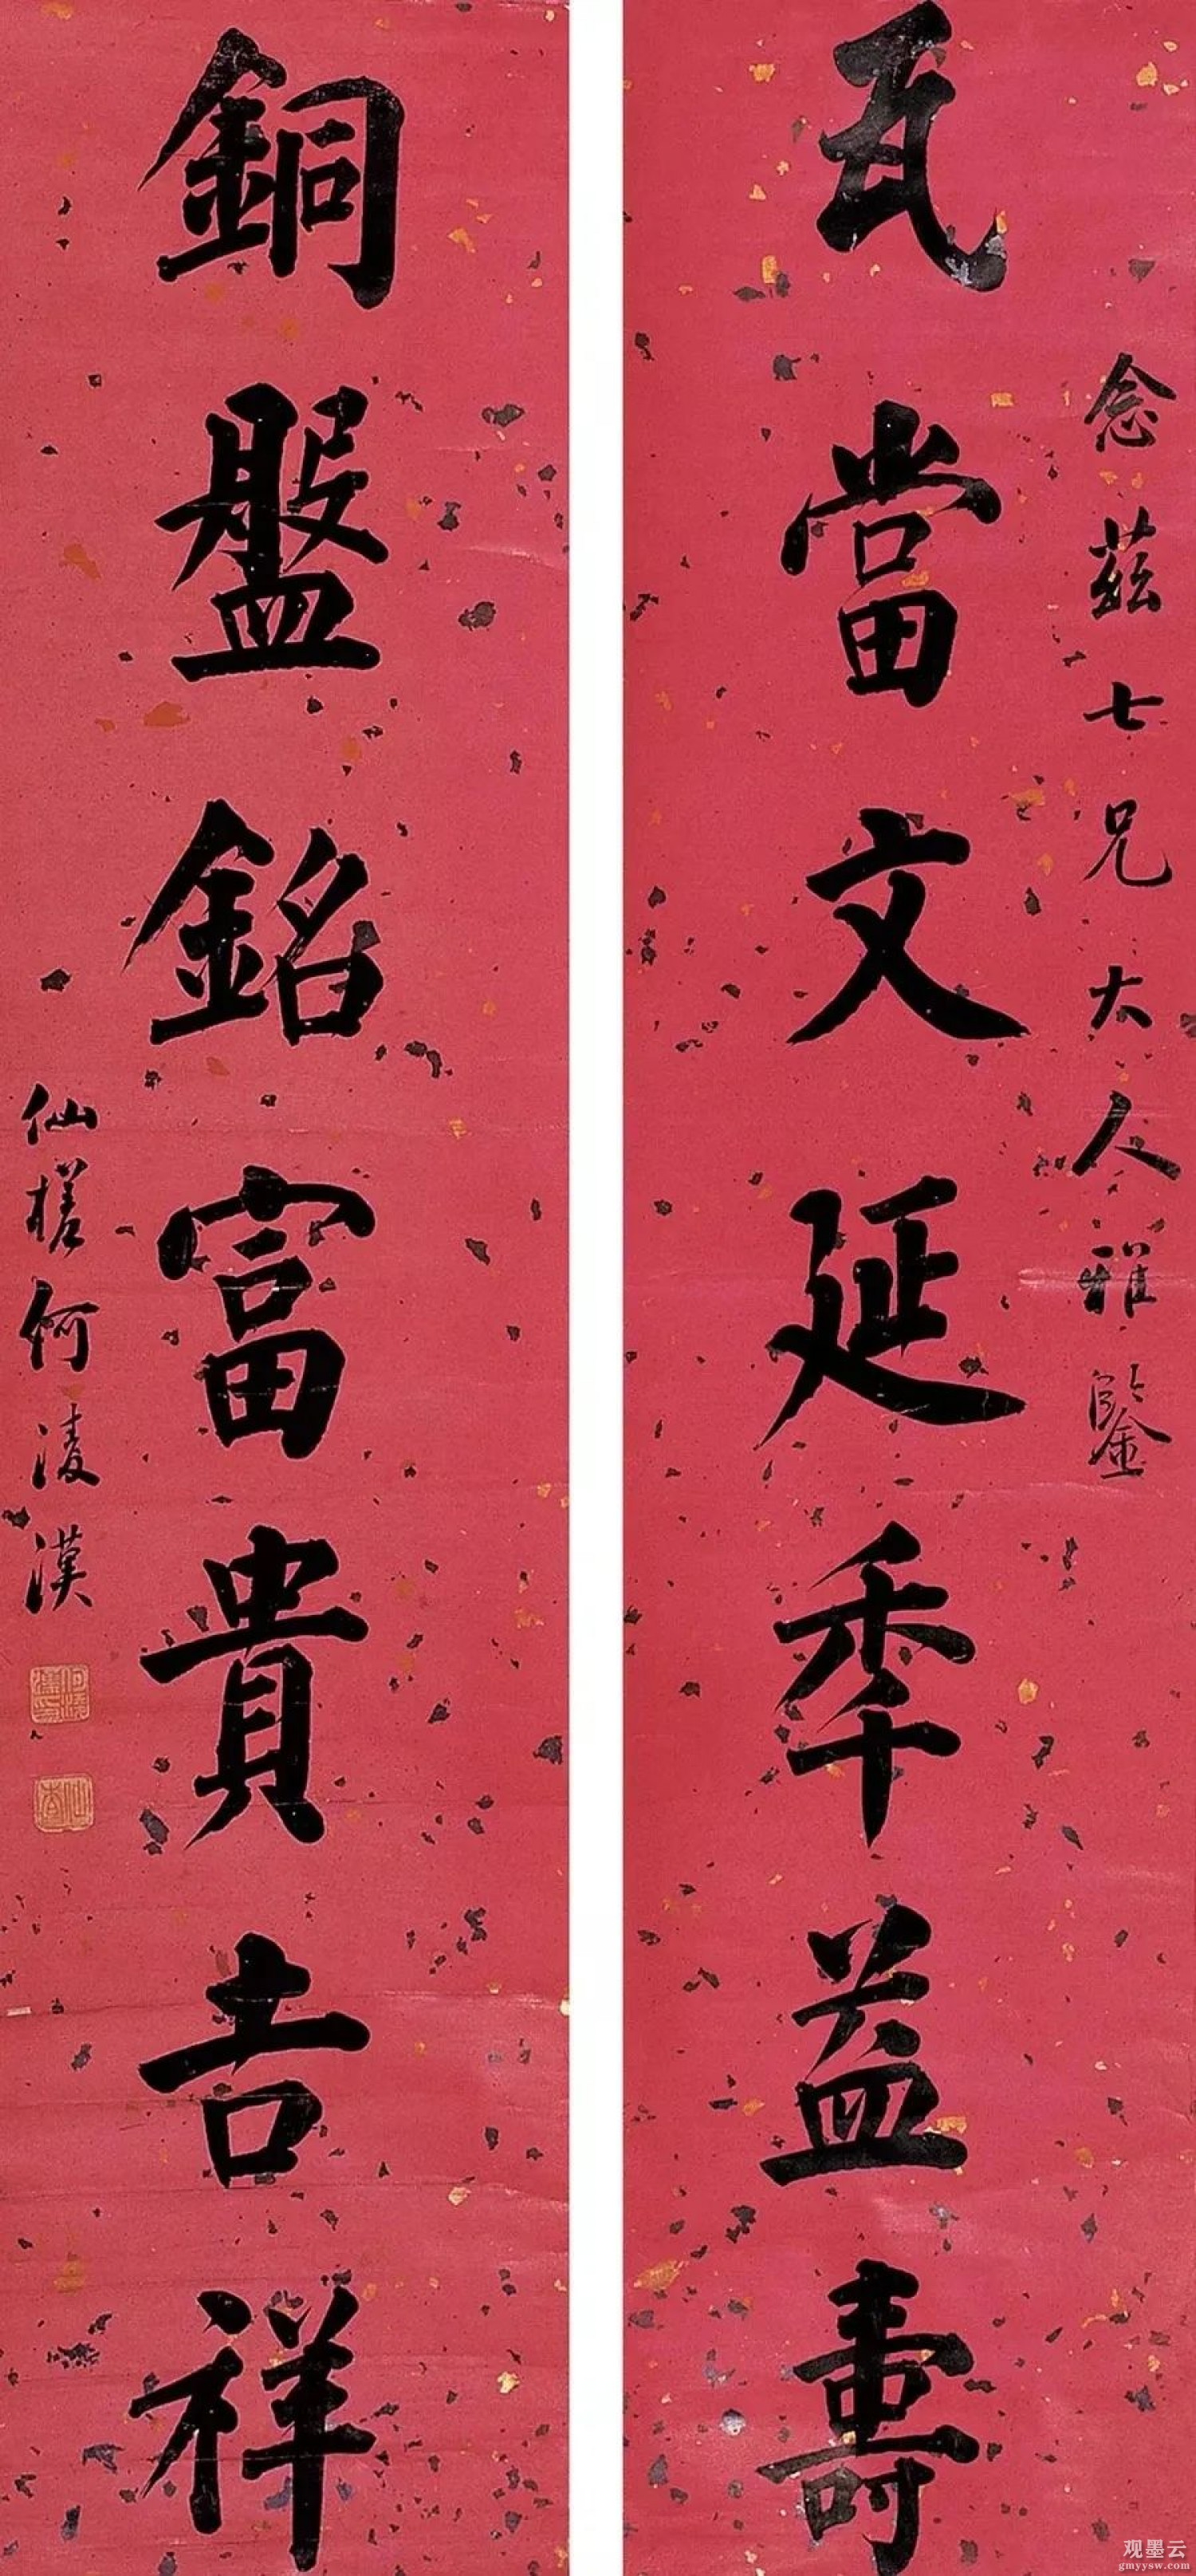 念茲七兄大人雅鑒
瓦當文延秊益壽
銅盤銘富貴吉祥
仙槎何凌漢
观墨云
gmyysw.com